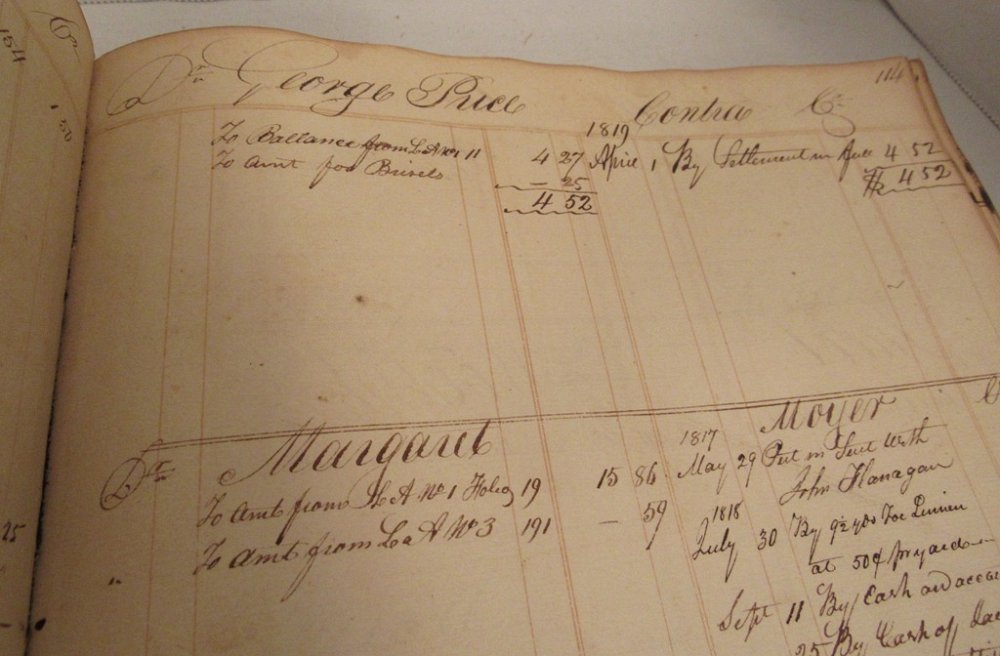 154
Cr
150
25
114
Dr George Price Contra Cr
1819
To Ballance from L A No 1 11 4 27 April 1 By Settlement in full 4 52
To Amt for Brisels – 25 $ 4 52
4 52
Dr Margaret Moyer
1817
To Amt from L A No 1 Folio 19 15 86 May 29 Put in Suit with
John Flanagan
1818
" To Amt from L A No 3 191 – 59 July 30 By 9½ yds Tow Linnen
at 50¢ pr yard
Sept 11 By Cash on
25 By Cash of